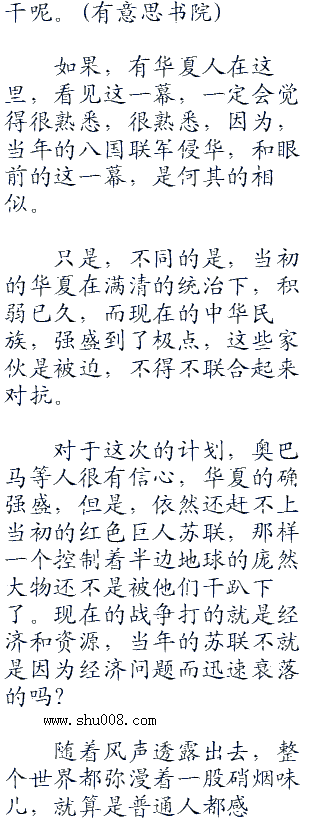 干呢。(有意思书院)
如果，有华夏人在这
里，看见这一幕，一定会觉
得很熟悉，很熟悉，因为，
当年的八国联军侵华，和眼
前的这一幕，是何其的相
似。
只是，不同的是，当初
的华夏在满清的统治下，积
弱已久，而现在的中华民
族，强盛到了极点，这些家
伙是被迫，不得不联合起来
对抗。
对于这次的计划，奥巴
马等人很有信心，华夏的确
强盛，但是，依然还赶不上
当初的红色巨人苏联，那样
一个控制着半边地球的庞然
大物还不是被他们干趴下
了。现在的战争打的就是经
济和资源，当年的苏联不就
是因为经济问题而迅速衰落
的吗？
www.shu008.com
随着风声透露出去，整
个世界都弥漫着一股硝烟味
儿，就算是普通人都感